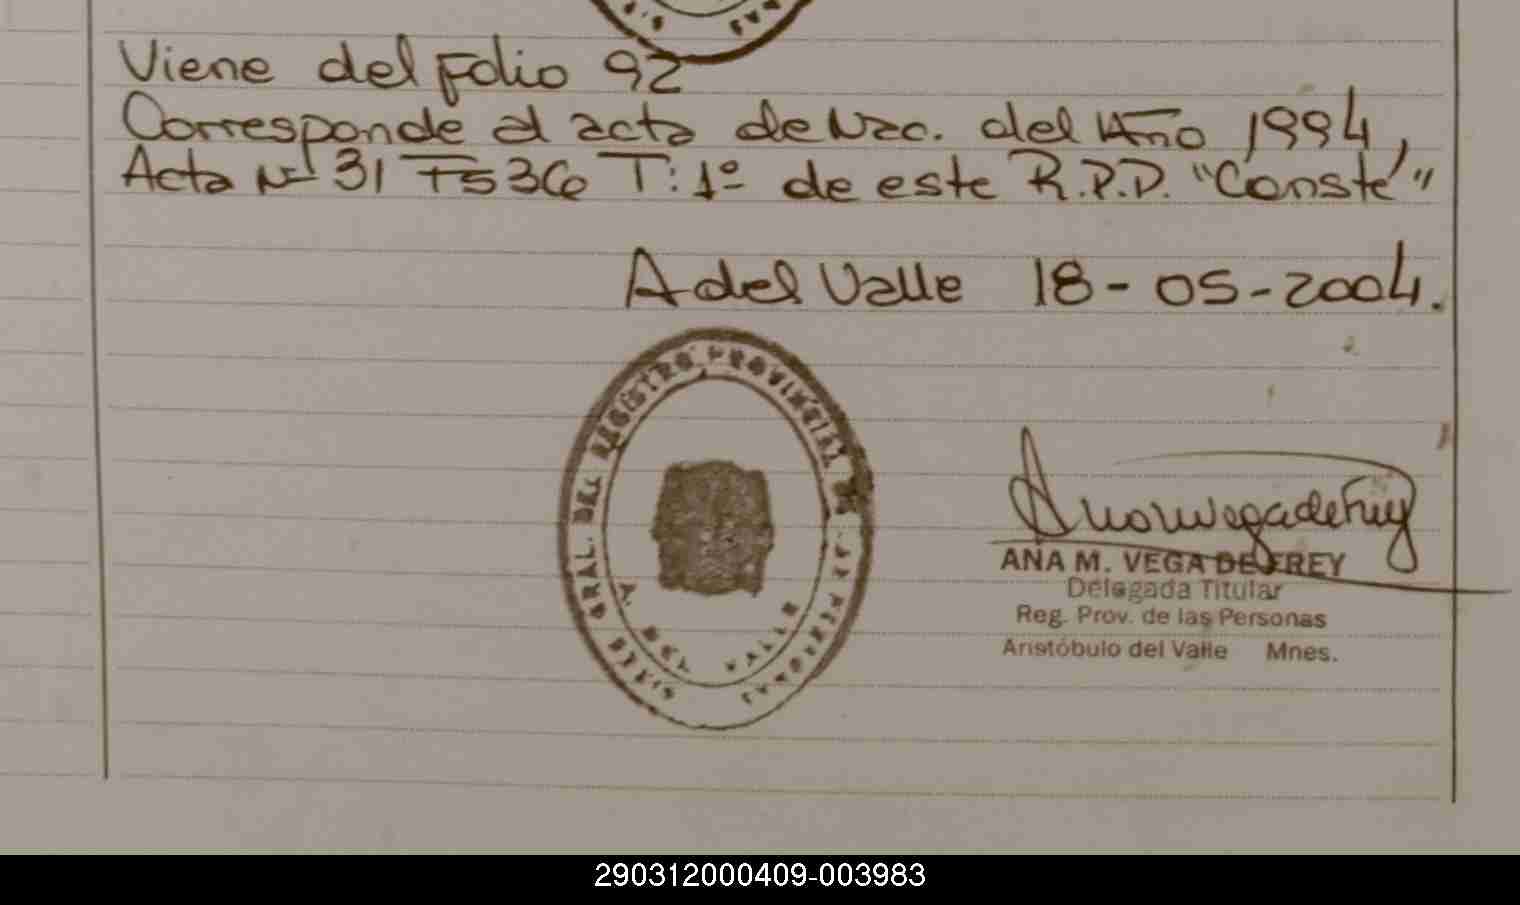 Viene del Folio 92
Corresponde al acta de Nac. del Año 1994,
Acta Nº 31 Tº 536 T: 1º de este R.P.D. "Conste"
A del Valle 18-05-2004.
GRAL. DEL REGISTRO PROVINCIAL DE LAS PERSONAS
A. DEL VALLE
ANA M. VEGA DE FREY
Delegada Titular
Reg. Prov. de las Personas
Aristóbulo del Valle Mnes.
290312000409-003983